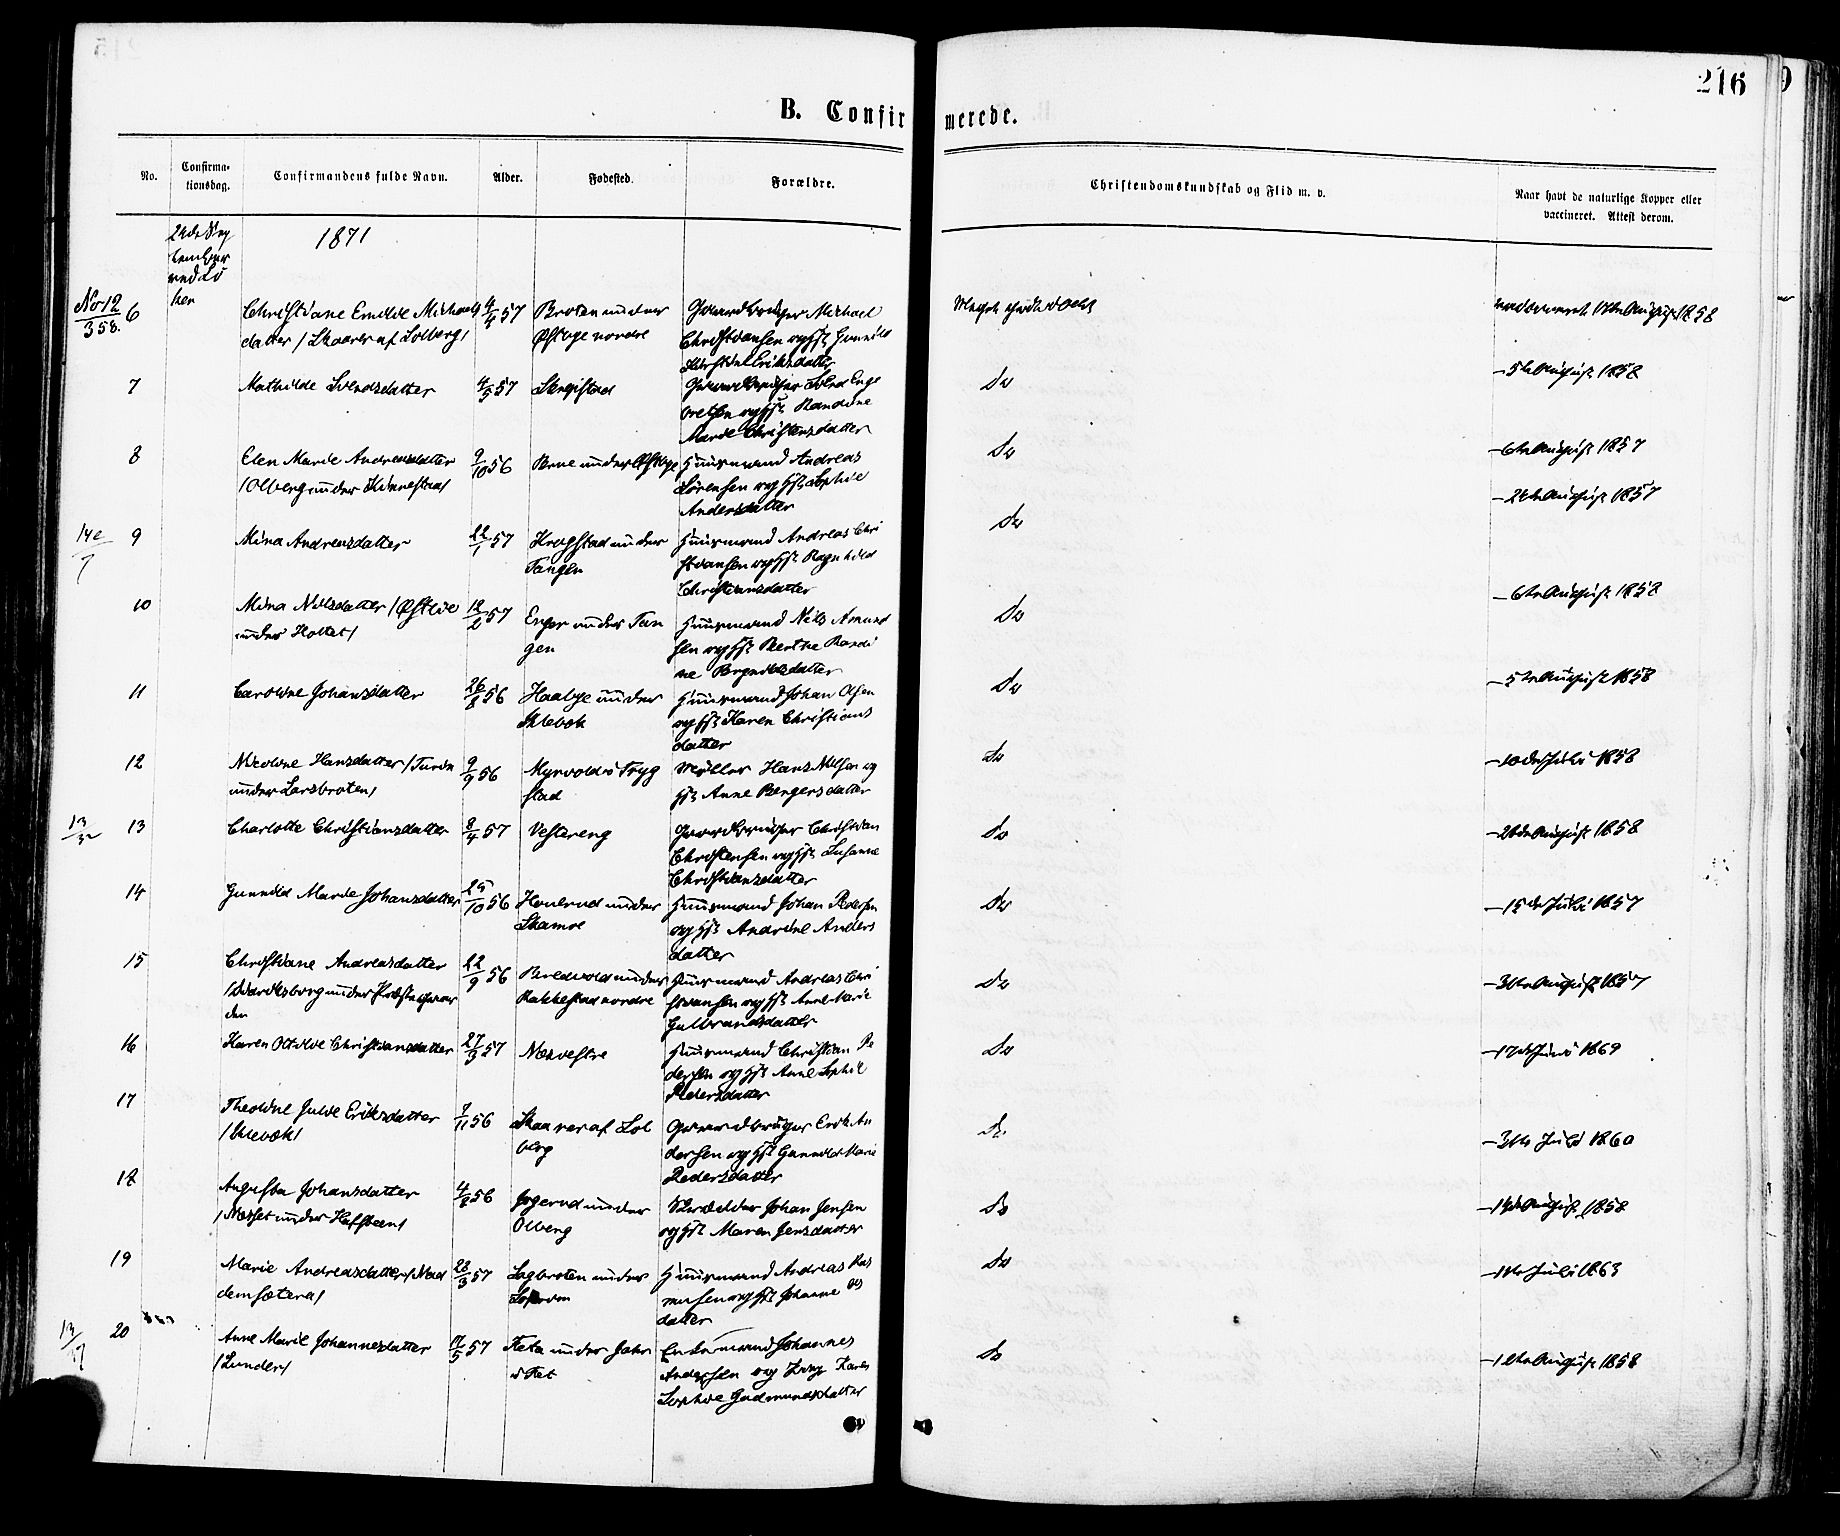 216
B. Confirmerede.
No.
Confirma-
tionsdag.
Confirmandens fulde Navn.
Alder.
Fødested.
Forældre.
Christendomskundskab og Flid m. v.
Naar havt de naturlige Kopper eller
vaccineret. Attest derom.
1871
No 12
358.
6
Christiane Emilie Michaels
datter /Skaarer af Solberg/
4/4 57
Braten under
Østbye nordre
Gaardbruger Michael
Christiansen og Hst Gunild
Kirstine Eriksdatter
Meget godt
vaccineret August 1858
7
Mathilde Svendsdatter
4/5 57
Gaardbruger Svend Enge
bretsen og Hst. Randine
Marie Christensdatter
Do
– 5te August 1858
8
Elen Marie Andreasdatter
/Olberg under Kinnestad/
9/10 56
under Østbye
Huusmand Andreas
Sørensen og Hst. Sophie
Andersdatter
Do
– 6te August 1857
14e/7
9
Mina Andreasdatter
22/1 57
Krogstad under
Tangen
Huusmand Andreas Chri
stiansen og Hst. Ragnhild
Christiansdatter
Do
– 24de August 1857
10
Mina Nilsdatter /Østlie
under Kollet/
12/2 57
Enger under Tan
gen
Huusmand Nils Amund
sen og Hst. Berthe Randi
ne Brynildsdatter
Do
– 6te August 1858
11
Caroline Johansdatter
26/8 56
Haabye under
Klevok
Huusmand Johan Olsen
og Hst Karen Christians
datter
Do
– 5te August 1858
12
Nicoline Hansdatter /Turin
under Larsbroten/
9/9 56
Myrvold i Tryg
stad
Møller Hans Nilsen og
Hst. Anne Børgersdatter
Do
– 10de Juli 1858
13
Charlotte Christiansdatter
8/4 57
Vestereng
Gaardbruger Christian
Christensen og Hst. Susanne
Christiansdatter
Do
– August 1858
14
Gunild Marie Johansdatter
25/10 56
under
Huusmand Johan Pedersen
og Hst. Andrine Anders
datter
Do
– 15de Juli 1857
15
Christiane Andreasdatter
under Præstegaar
den
22/9 56
Bredvold under
Rakkestad nordre
Huusmand Andreas Chri
stiansen og Hst. Anne Marie
Gulbrandsdatter
Do
– August 1857
16
Karen Otilie Christiansdatter
27/3 57
Næs vestre
Huusmand Christian Pe
dersen og Hst. Anne Sophie
Pedersdatter
Do
– 17de Juni 1869
17
Theoline Julie Eriksdatter
/Klevok/
7/11 56
Skaarer af Sol
berg
Gaardbruger Erik An
dersen og Hst Gunild Marie
Pedersdatter
Do
– Juli 1860
18
Augusta Johansdatter
/Næsset under Hafsteen/
4/8 56
under
Olberg
Skrædder Johan Jensen
og Hst Maren Jensdatter
Do
– August 1858
19
Marie Andreasdatter
28/3 57
Lagbroten under
Huusmand Andreas Ras
musen og Hst. Johanne Ols
datter
Do
– Juli 1863
20
Anne Marie Johannesdatter
/Lunder/
17/5 57
under
Enkemand Johannes
Andersen og Karen
Sophie Gudmundsdatter
Do
– August 1858